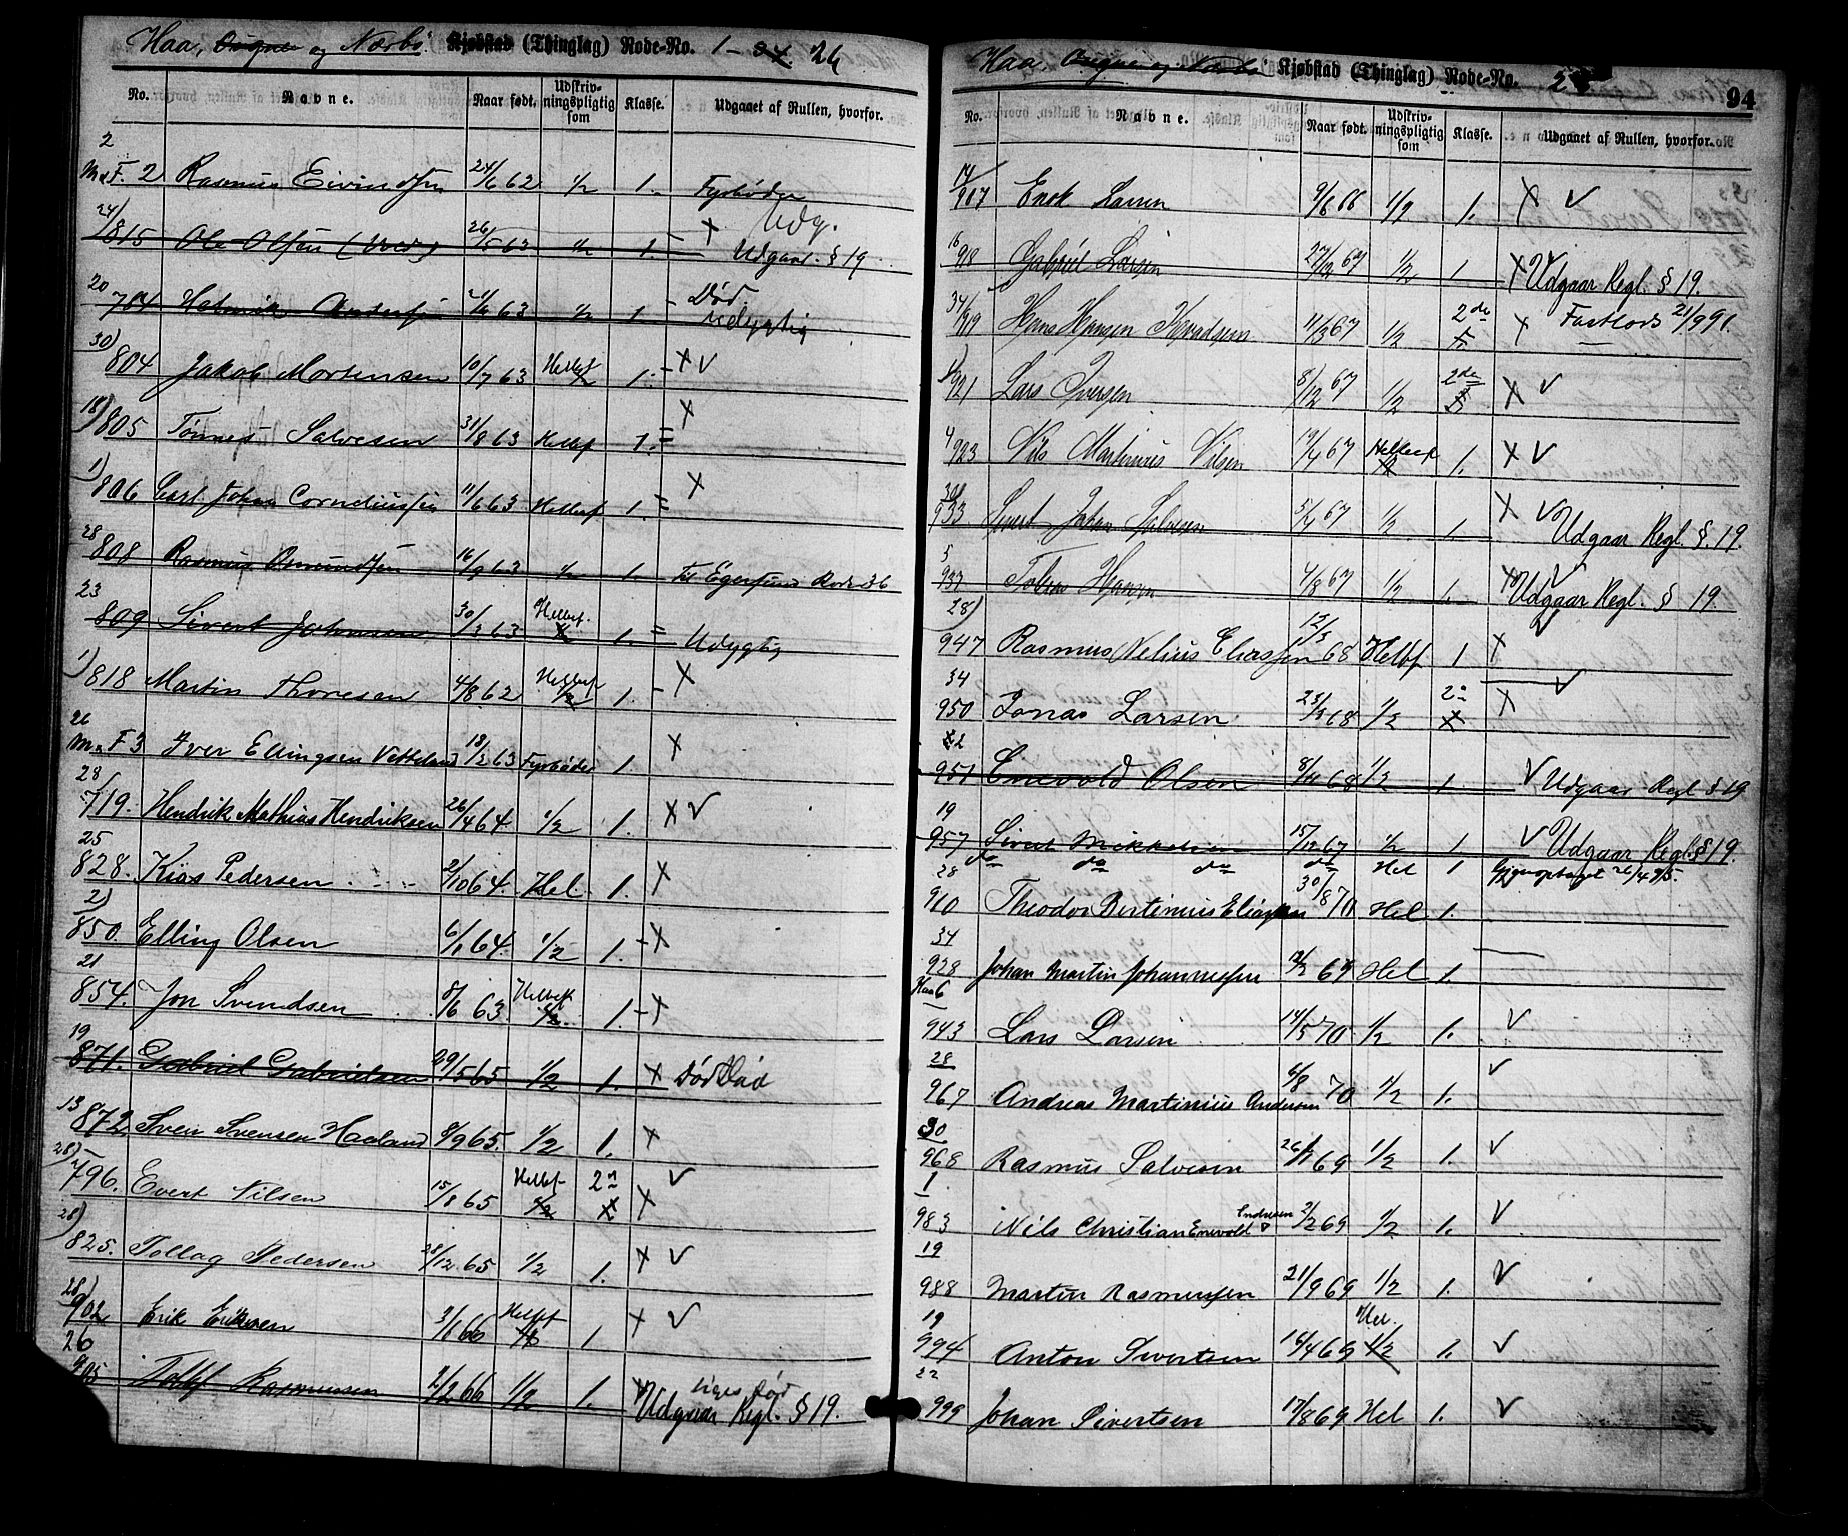 Haa, Ougne og Nærbø. Kjøbstad (Thinglag) Rode-No. 1 - 34. 26
No. Navne. Naar født. Udskrivningspligtig som Klasse. Udgaaet af Rullen, hvorfor.
2
M.F. 2 Rasmus Eivindsen 24/6 62 1/2 1. Fyrbøder
24/815 Ole Olsen 26/5 63 1/2 1. X Udg. Udgaar. § 19
20
704 Henrik Andersen 63 1/2 1. Død. Udygtig
30)
804 Jakob Mortensen 10/7 63 Helbef 1/2 1. X V
18)
805 Tønnes Salvesen 31/8 63 Helbef 1. X
1)
806 Carl Johan Corneliussen 11/6 63 Helbef 1. X
28
808 Rasmus Osmundsen 16/9 63 1/2 1. Til Egersund Rode 36
23
809 Sivert Johnsen 30/3 63 Helbef. 1/2 1. Udygtig
1)
818 Martin Thoresen 4/8 62 Helbef 1/2 1. X
26
M.F 3 Iver Ellingsen Vetteland 18/2 63 Fyrbøder 1. X
28
719. Hendrik Mathias Hendriksen 26/4 64. 1/2 1. X V
25
828. Kias Pedersen 2/10 64. Hel. 1. X
2)
850. Elling Olsen 6/1 64. 1/2 1. X
21
854. Jon Svendsen 8/6 63. Helbef 1/2. 1. X
19
871. Gabriel Gabrielsen 29/5 65 1/2 1. X Død Død
13
872 Sven Svensen Haaland 8/9 65. 1/2 1. X
28)
796. Evert Nilsen 15/8 65 Helbef 1/2 2n X V
28)
825. Tollag Pedersen 28/12 65 1/2 1. X V
28)
902 Erik Eriksen 3/1 66 Helbef 1/2 1. X V
26
905 Tollef Rasmussen 2/2 66 1/2 1. Udgaar Regl. § 19.
Haa, Ougne og Nærbø Kjøbstad (Thinglag) Rode-No. 2 94
No. Navne. Naar født. Udskrivningspligtig som Klasse. Udgaaet af Rullen, hvorfor.
14/
907 Enok Larsen 9/6 66 1/2 1. X V
16
918 Gabriel Larsen 27/2 67 1/2 1. X Udgaar Regl. § 19.
34/
919 Hans Hansen 11/3 67 1/2 2de X Fastlods 21/9 91.
921 Lars Iversen 8/12 67 1/2 2de X V
4
923 Nils Martinius Nilsen 19/4 67 Helbef 1/2 1. X V
30
933 Sivert Johan Salvesen 5/4 67 1/2 1. X V Udgaar Regl. § 19.
5
937 Tobias Hansen 4/8 67 1/2 1. X V Udgaar Regl. § 19.
28)
947 Rasmus Nelius Eliassen 12/3 68 Helbf 1 X V
34
950 Jonas Larsen 23/2 68 1/2 2n X V
32
951 Enevold Olsen 8/4 68 1/2 1. V Udgaar Regl § 19
19
957 Sivert Mikkelsen 15/12 67 1/2 1 V Udgaar Regl. § 19.
do do do do Hel 1. Gjenoptaget 26/4 95.
28
960 Theodor Bertinius Eliassen 30/8 70 Hel 1.
34
928 Johan Martin Johannessen 12/2 69 Hel 1.
Haa 6
943 Lars Larsen 14/5 70 1/2 1. V
28
967 Andreas Martinius Andersen 6/8 70 1/2 1. V
30
968 Rasmus Salvesen 26/1 69 1/2 1. V
1
983 Nils Christian Enevold Endresen 2/2 69 1/2 1. V
19
988 Martin Rasmussen 21/9 69 1/2 1. V
19
994 Anton Sivertsen 16/4 69 Hel. 1/2 1. V
22
999 Johan Sivertsen 17/8 69 Hel 1. V